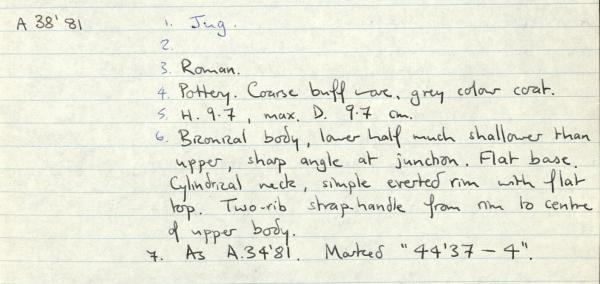 A 38'81 1. Jug.
2.
3. Roman.
4. Pottery. Coarse buff ware, grey colour coat.
5. H. 9.7, max. D. 9.7 cm.
6. Biconical body, lower half much shallower than
upper, sharp angle at junction. Flat base.
Cylindrical neck, simple everted rim with flat
top. Two-rib strap-handle from rim to centre
of upper body.
7. As A.34'81. Marked "44'37 - 4".